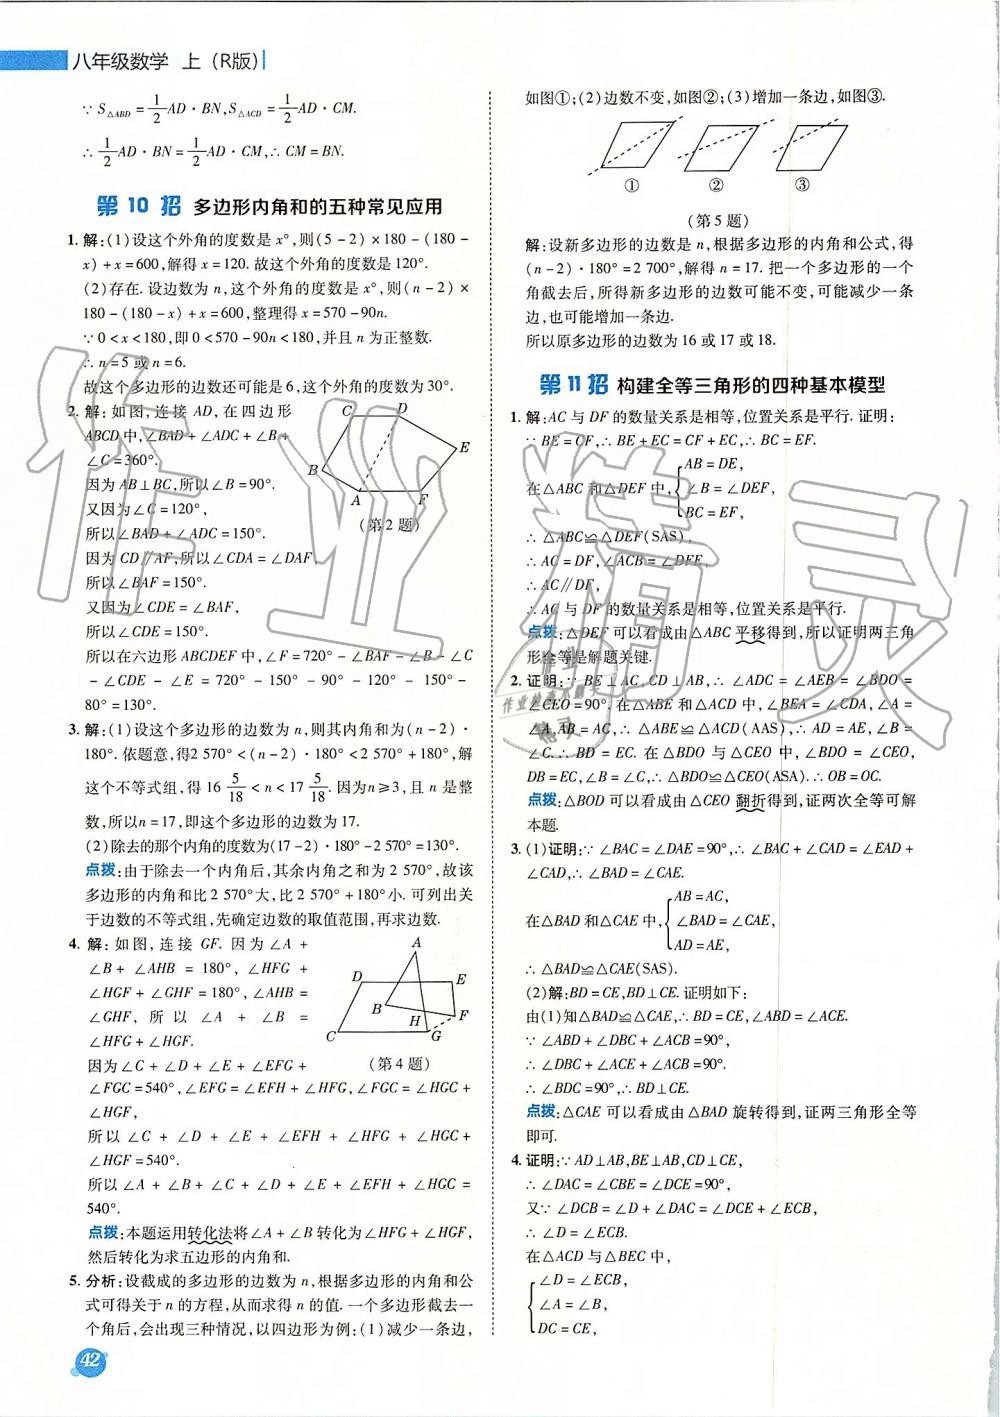 八年级数学 上（R版）
∵S△ABD=1/2AD·BN,S△ACD=1/2AD·CM.
∴1/2AD·BN=1/2AD·CM,∴CM=BN.
第10招 多边形内角和的五种常见应用
1. 解:(1)设这个外角的度数是x°,则(5-2)×180-(180-
x)+x=600,解得x=120.故这个外角的度数是120°.
(2)存在.设边数为n,这个外角的度数是x°,则(n-2)×
180-(180-x)+x=600,整理得x=570-90n.
∵0<x<180,即0<570-90n<180,并且n为正整数.
∴n=5或n=6.
故这个多边形的边数还可能是6,这个外角的度数为30°.
2. 解:如图,连接AD,在四边形
ABCD中,∠BAD+∠ADC+∠B+
∠C=360°.
因为AB⊥BC,所以∠B=90°.
又因为∠C=120°,
所以∠BAD+∠ADC=150°.
因为CD∥AF,所以∠CDA=∠DAF.
所以∠BAF=150°.
又因为∠CDE=∠BAF,
所以∠CDE=150°.
所以在六边形ABCDEF中,∠F=720°-∠BAF-∠B-∠C
-∠CDE-∠E=720°-150°-90°-120°-150°-
80°=130°.
C D E B A F
(第2题)
3. 解:(1)设这个多边形的边数为n,则其内角和为(n-2)·
180°.依题意,得2 570°<(n-2)·180°<2 570°+180°,解
这个不等式组,得16 5/18<n<17 5/18.因为n≥3,且n是整
数,所以n=17,即这个多边形的边数为17.
(2)除去的那个内角的度数为(17-2)·180°-2 570°=130°.
点拨:由于除去一个内角后,其余内角之和为2 570°,故该
多边形的内角和比2 570°大,比2 570°+180°小.可列出关
于边数的不等式组,先确定边数的取值范围,再求边数.
4. 解:如图,连接GF.因为∠A+
∠B+∠AHB=180°,∠HFG+
∠HGF+∠GHF=180°,∠AHB=
∠GHF,所以∠A+∠B=
∠HFG+∠HGF.
因为∠C+∠D+∠E+∠EFG+
∠FGC=540°,∠EFG=∠EFH+∠HFG,∠FGC=∠HGC+
∠HGF,
所以∠C+∠D+∠E+∠EFH+∠HFG+∠HGC+
∠HGF=540°.
所以∠A+∠B+∠C+∠D+∠E+∠EFH+∠HGC=
540°.
A D E B H F C G
(第4题)
点拨:本题运用转化法将∠A+∠B转化为∠HFG+∠HGF,
然后转化为求五边形的内角和.
5. 分析:设截成的多边形的边数为n,根据多边形的内角和公
式可得关于n的方程,从而求得n的值.一个多边形截去一
个角后,会出现三种情况,以四边形为例:(1)减少一条边,
42
如图①;(2)边数不变,如图②;(3)增加一条边,如图③.
① ② ③
(第5题)
解:设新多边形的边数是n,根据多边形的内角和公式,得
(n-2)·180°=2 700°,解得n=17.把一个多边形的一个
角截去后,所得新多边形的边数可能不变,可能减少一条
边,也可能增加一条边.
所以原多边形的边数为16或17或18.
第11招 构建全等三角形的四种基本模型
1. 解:AC与DF的数量关系是相等,位置关系是平行.证明:
∵BE=CF,∴BE+EC=CF+EC,∴BC=EF.
在△ABC和△DEF中,
AB=DE,
∠B=∠DEF,
BC=EF,
∴△ABC≌△DEF(SAS).
∴AC=DF,∠ACB=∠DFE,
∴AC∥DF,
∴AC与DF的数量关系是相等,位置关系是平行.
点拨:△DEF可以看成由△ABC平移得到,所以证明两三角
形全等是解题关键.
2. 证明:∵BE⊥AC,CD⊥AB,∴∠ADC=∠AEB=∠BDO=
∠CEO=90°.在△ABE和△ACD中,∠BEA=∠CDA,∠A=
∠A,AB=AC,∴△ABE≌△ACD(AAS),∴AD=AE,∠B=
∠C.∴BD=EC.在△BDO与△CEO中,∠BDO=∠CEO,
DB=EC,∠B=∠C,∴△BDO≌△CEO(ASA).∴OB=OC.
点拨:△BOD可以看成由△CEO翻折得到,证两次全等可解
本题.
3. (1)证明:∵∠BAC=∠DAE=90°,∴∠BAC+∠CAD=∠EAD+
∠CAD,∴∠BAD=∠CAE.
在△BAD和△CAE中,
AB=AC,
∠BAD=∠CAE,
AD=AE,
∴△BAD≌△CAE(SAS).
(2)解:BD=CE,BD⊥CE.证明如下:
由(1)知△BAD≌△CAE,∴BD=CE,∠ABD=∠ACE.
∵∠ABD+∠DBC+∠ACB=90°,
∴∠DBC+∠ACE+∠ACB=90°.
∴∠BDC=90°,∴BD⊥CE.
点拨:△CAE可以看成由△BAD旋转得到,证两三角形全等
即可.
4. 证明:∵AD⊥AB,BE⊥AB,CD⊥CE,
∴∠DAC=∠CBE=∠DCE=90°,
又∵∠DCB=∠D+∠DAC=∠DCE+∠ECB,
∴∠D=∠ECB.
在△ACD与△BEC中,
∠D=∠ECB,
∠A=∠B,
DC=CE,
作业精灵